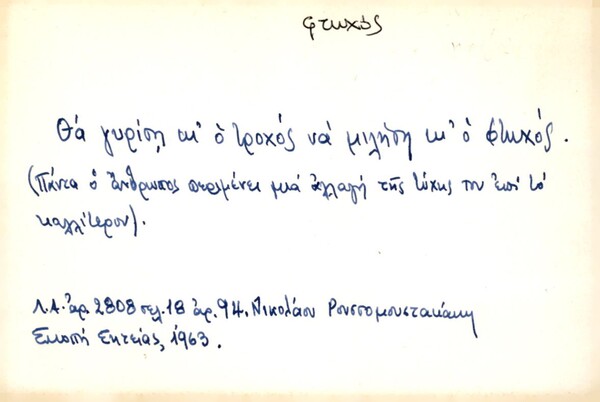 φτωχός
Θά γυρίση κι' ὁ τροχός νά μιλήση κι' ὁ φτωχός.
(Πάντα ὁ ἄνθρωπος περιμένει μιά ἀλλαγή τῆς τύχης του ἐπί τό
καλλίτερον).
Λ.Α. ἀρ. 2808 σελ. 18 ἀρ. 94. Νικολάου Ρουσσομουστακάκη
Σκοπή Σητείας, 1963.